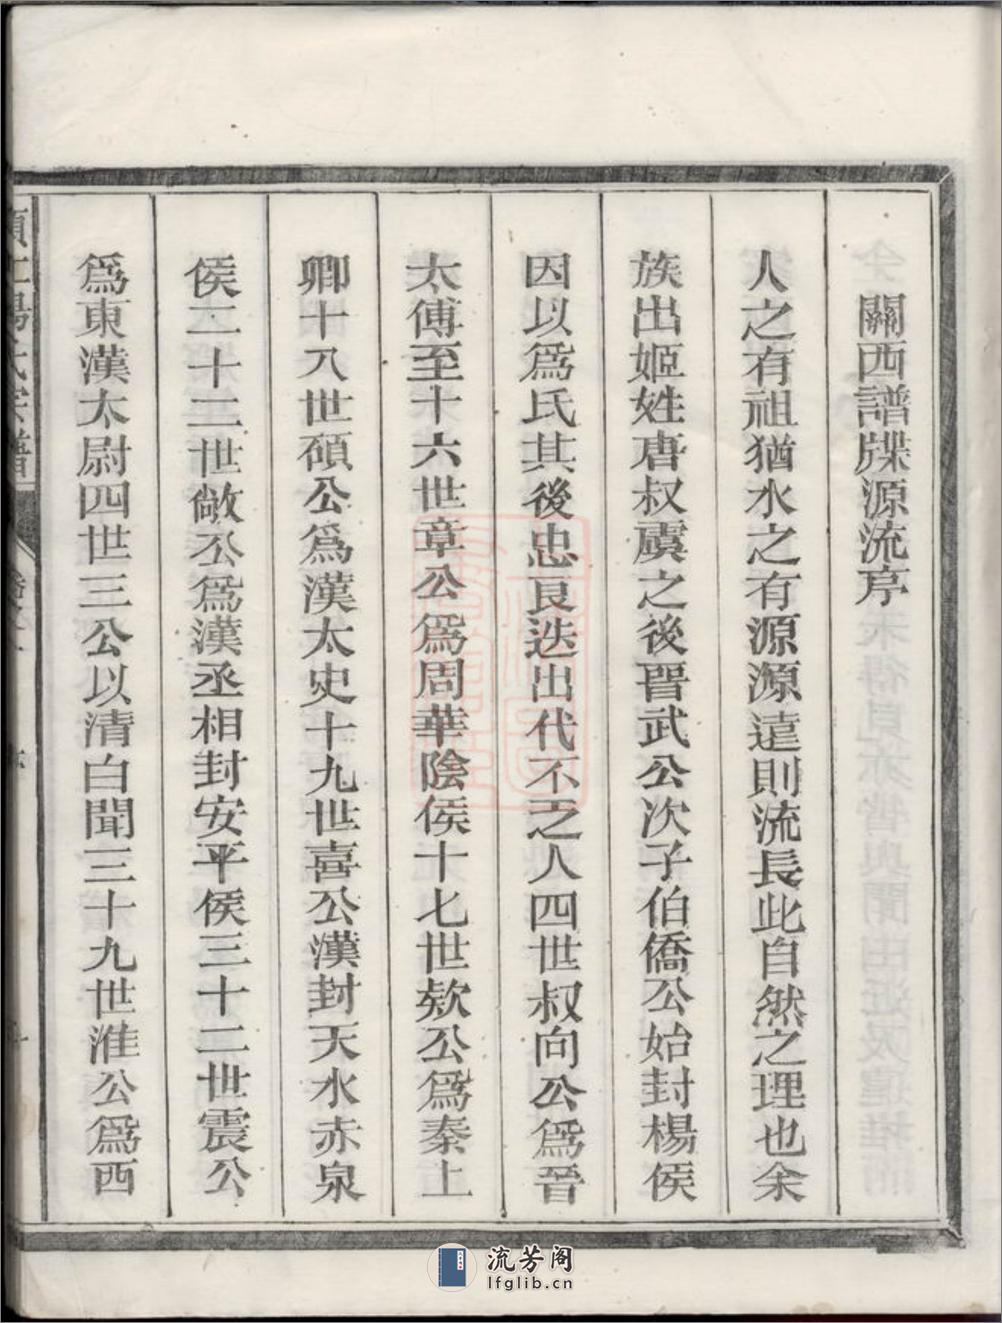 關西譜牒源流序
人之有祖猶水之有源源遠則流長此自然之理也余
族出姬姓唐叔虞之後晉武公次子伯僑公始封楊侯
因以爲氏其後忠良迭出代不乏人四世叔向公爲晉
太傅至十六世章公爲周華陰侯十七世欵公爲秦上
卿十八世碩公爲漢太史十九世喜公漢封天水赤泉
侯二十二世敞公爲漢丞相封安平侯三十二世震公
爲東漢太尉四世三公以清白聞三十九世淮公爲西
氏宗譜
流芳阁
lfglib.cn